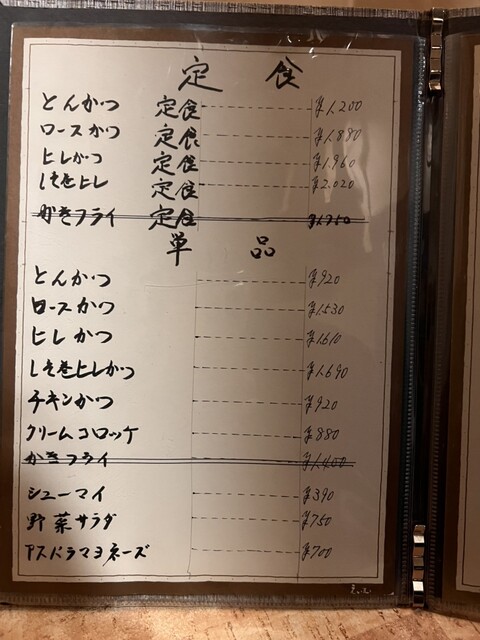 定食
とんかつ 定食 ¥1,200
ロースかつ 定食 ¥1,880
ヒレかつ 定食 ¥1,960
しそ巻ヒレ 定食 ¥2,020
かきフライ 定食 ¥1,750
単品
とんかつ ¥920
ロースかつ ¥1,530
ヒレかつ ¥1,610
しそ巻ヒレかつ ¥1,690
チキンかつ ¥920
クリームコロッケ ¥880
かきフライ ¥1,400
シューマイ ¥390
野菜サラダ ¥750
アスパラマヨネーズ ¥700